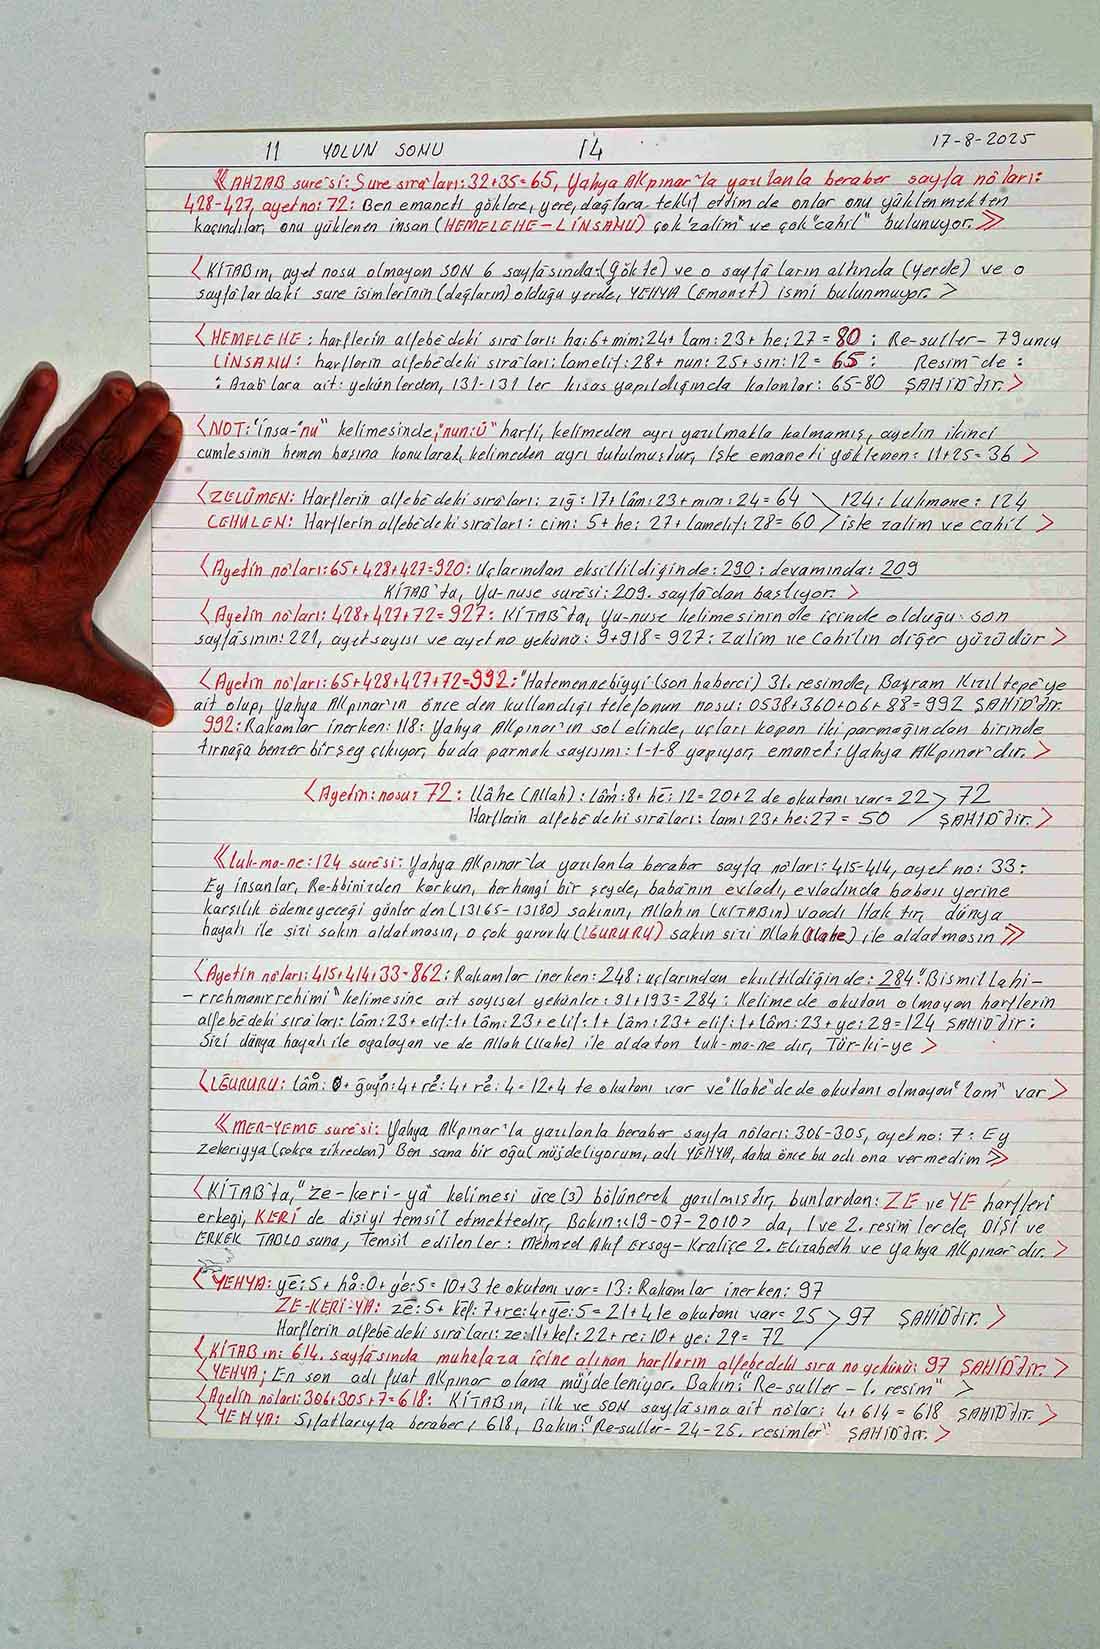 11 YOLUN SONU 14 17-8-2025
《AHZAB suresi: Sure sıraları: 32+35=65, Yahya Akpınar'la yazılanla beraber sayfa noları:
428-427, ayet no: 72: Ben emaneti göklere, yere, dağlara teklif ettim de onlar onu yüklenmekten
kaçındılar, onu yüklenen insan (HEMELEHE-LİNSANU) çok "zalim" ve çok "cahil" bulunuyor.》
<KİTABın, ayet nosu olmayan SON 6 sayfasında: (gökte) ve o sayfaların altında (yerde) ve o
sayfalardaki sure isimlerinin (dağların) olduğu yerde, YEHYA (Emanet) ismi bulunmuyor.>
<HEMELEHE: harflerin alfebedeki sıraları: ha:6+mim:24+lam:23+he:27=80: Re-suller-79uncu
LİNSANU: harflerin alfebedeki sıraları: lamelif:28+nun:25+sin:12=65: Resim de:
: Arab'lara ait: yekünlerden, 131-131 ler kısas yapıldığında kalanlar: 65-80 ŞAHİDdir.>
<NOT: "insa-"nu" kelimesinde, "nun:ü" harfi, kelimeden ayrı yazılmakla kalmamış, ayetin ikinci
cumlesinin hemen başına konularak, kelimeden ayrı tutulmuştur, İşte emaneti yüklenen: 11+25=36>
<ZELÜMEN: Harflerin alfebedeki sıraları: zığ:17+lâm:23+mim:24=64 > 124: Lukmane: 124
CEHULEN: Harflerin alfebedeki sıraları: cim:5+he:27+lamelif:28=60 > işte zalim ve cahil>
<Ayetin noları: 65+428+427=920: Uçlarından eksiltildiğinde: 290: devamında: 209
KİTAB'ta, Yu-nuse suresi: 209. sayfadan başlıyor.>
<Ayetin noları: 428+427+72=927: KİTAB'ta, Yu-nuse kelimesinin de içinde olduğu: son
sayfasının: 221, ayet sayısı ve ayet no yekünü: 9+918=927: Zalim ve Cahilin diğer yüzüdür>
<Ayetin noları: 65+428+427+72=992: "Hatemennebiyyi (son haberci) 31. resimde, Bayram Kızıltepe'ye
ait olup, Yahya Akpınar'ın önceden kullandığı telefonun nosu: 0538+360+06+88=992 ŞAHİDdir.
992: Rakamlar inerken: 118: Yahya Akpınar'ın sol elinde, uçları kopan iki parmağından birinde
tırnağa benzer birşey çıkıyor, buda parmak sayısını: 1-1-8 yapıyor, emanet: Yahya Akpınar'dır.>
<Ayetin: nosu: 72: llâhe (Allah): lâm:8+hē:12=20+2 de okutanı var=22 > 72
Harflerin alfebedeki sıraları: lam:23+he:27=50 ŞAHİDdir.>
《Luk-ma-ne: 124 suresi: Yahya Akpınar'la yazılanla beraber sayfa noları: 415-414, ayet no: 33:
Ey insanlar, Re-bbinizden korkun, herhangi bir şeyde, baba'nın evladı, evladında babası yerine
karşılık ödemeyeceği günlerden (13165-13180) sakının, Allahın (KİTABın) vaadi Haktır, dünya
hayatı ile sizi sakın aldatmasın, o çok gururlu (LĞURURU) sakın sizi Allah (llahe) ile aldatmasın》
<Ayetin noları: 415+414+33=862: Rakamlar inerken: 248: uçlarından eksiltildiğinde: 284 "Bismillahi-
-rrehmanırrehimi" kelimesine ait sayısal yekünler: 91+193=284: Kelimede okutan olmayan harflerin
alfebedeki sıraları: lâm:23+elif:1+lâm:23+elif:1+lâm:23+elif:1+lâm:23+ye:29=124 ŞAHİDdir:
Sizi dünya hayatı ile ogalayan ve de Allah (llahe) ile aldatan Luk-ma-ne dır, Tür-ki-ye>
<LĞURURU: lâm:0+ğuyn:4+re:4+re:4=12+4 te okutanı var ve "llahe" dede okutanı olmayan "lam" var>
《MER-YEME suresi: Yahya Akpınar'la yazılanla beraber sayfa noları: 306-305, ayet no: 7: Ey
zekeriyya (çokça zikreden) Ben sana bir oğul müjdeliyorum, adı YEHYA, daha önce bu adı ona vermedim》
<KİTAB'ta, "ze-keri-ya" kelimesi üçe (3) bölünerek yazılmıştır, bunlardan: ZE ve YE harfleri
erkeği, KERİ de dişiyi temsil etmektedir, Bakın: <19-07-2010> da, 1 ve 2. resimlerde, DİŞİ ve
ERKEK TABLOsuna, Temsil edilenler: Mehmed Akif Ersoy-Kraliçe 2. Elizabeth ve Yahya Akpınar'dır.>
<YEHYA: yē:5+hå:0+ye:5=10+3 te okutanı var=13: Rakamlar inerken: 97
ZE-KERİ-YA: ze:5+kef:7+re:4+ye:5=21+4 te okutanı var=25 > 97 ŞAHİDdir.>
Harflerin alfebedeki sıraları: ze:11+kef:22+re:10+ye:29=72
<KİTABın: 614. sayfasında muhafaza içine alınan harflerin alfebedeki sıra no yekünü: 97 ŞAHİDdir.>
<YEHYA; En son adı fuat Akpınar olana müjdeleniyor. Bakın: "Re-suller-1. resim">
<Ayetin noları: 306+305+7=618: KİTABın, ilk ve SON sayfasına ait nolar: 4+614=618 ŞAHİDdir.>
<YEHYA: Sıfatlarıyla beraber: 618, Bakın: "Re-suller-24-25. resimler" ŞAHİDdir.>